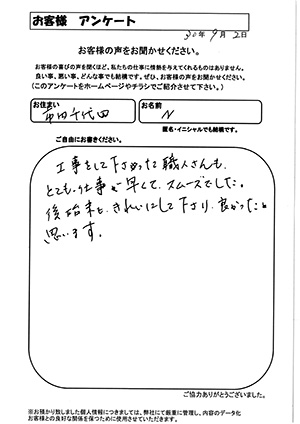 お客様 アンケート
30年9月2日
お客様の声をお聞かせください。
お客様の喜びの声を聞くほど、私たちの仕事に情熱を与えてくれるものはありません。
良い事、悪い事、どんな事でも結構です。ぜひ、お客様の声をお聞かせください。
(このアンケートをホームページやチラシでご紹介させて下さい。)
お住まい
お名前
市内千代田
N
匿名・イニシャルでも結構です。
ご自由にお書きください。
工事をして下さった職人さんも、
とても仕事が早くて、スムーズでした。
後始末も、きれいにして下さり、良かったと
思います。
ご協力ありがとうございました。
※お預かり致しました個人情報につきましては、弊社にて厳重に管理し、内容のデータ化
お客様との良好な関係を保つために使用させていただきます。